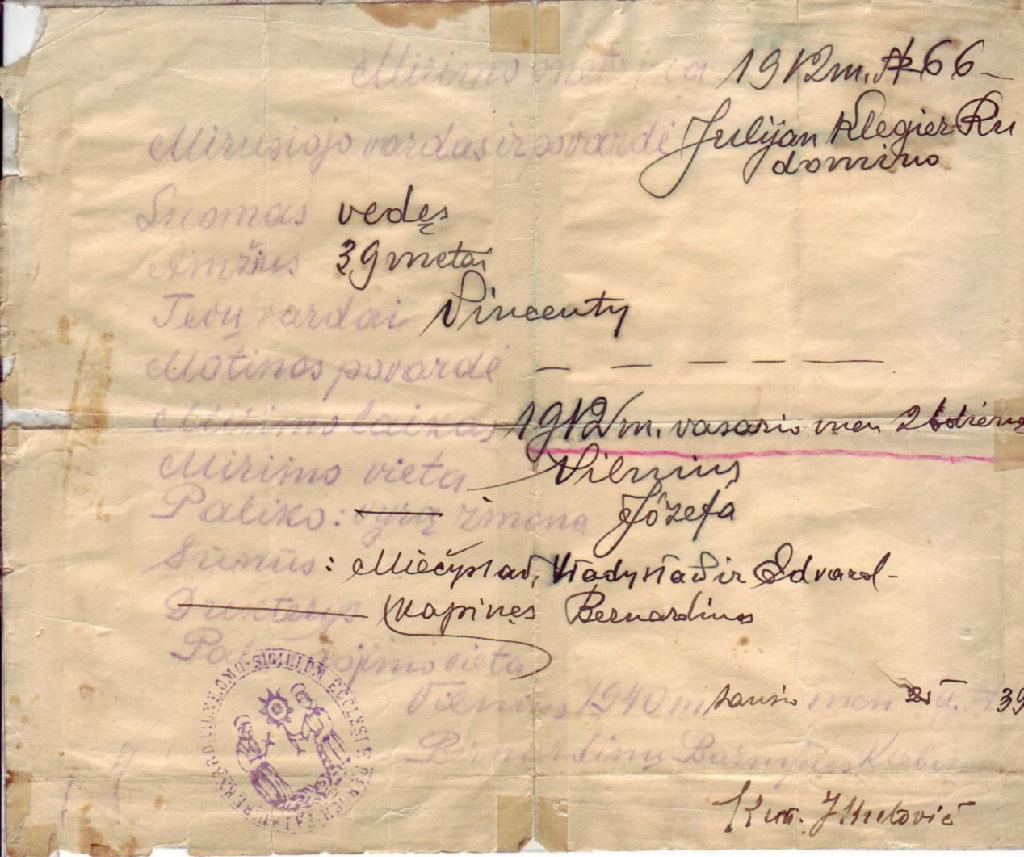 Mirimo metrika 1912 m. № 66
Mirusiojo vardas ir pavardė Julijan Klegier-Ru
domino
Luomas vedęs
Amžius 39 metai
Tėvų vardai Vincenty
Motinos pavardė — — — —
Mirimo laikas 1912 m. vasario men 26 dieną
Mirimo vieta Vilnius
Paliko: vyrą žmona Józefa
Sūnūs: Mięčysłav, Władysław ir Edvard
Dukterys Kapinęs Bernardinos
Palaidojimo vieta
Vilnius 1940 m sausio men 25 d. 39
Bernardinų Bažnyčios
Kun.